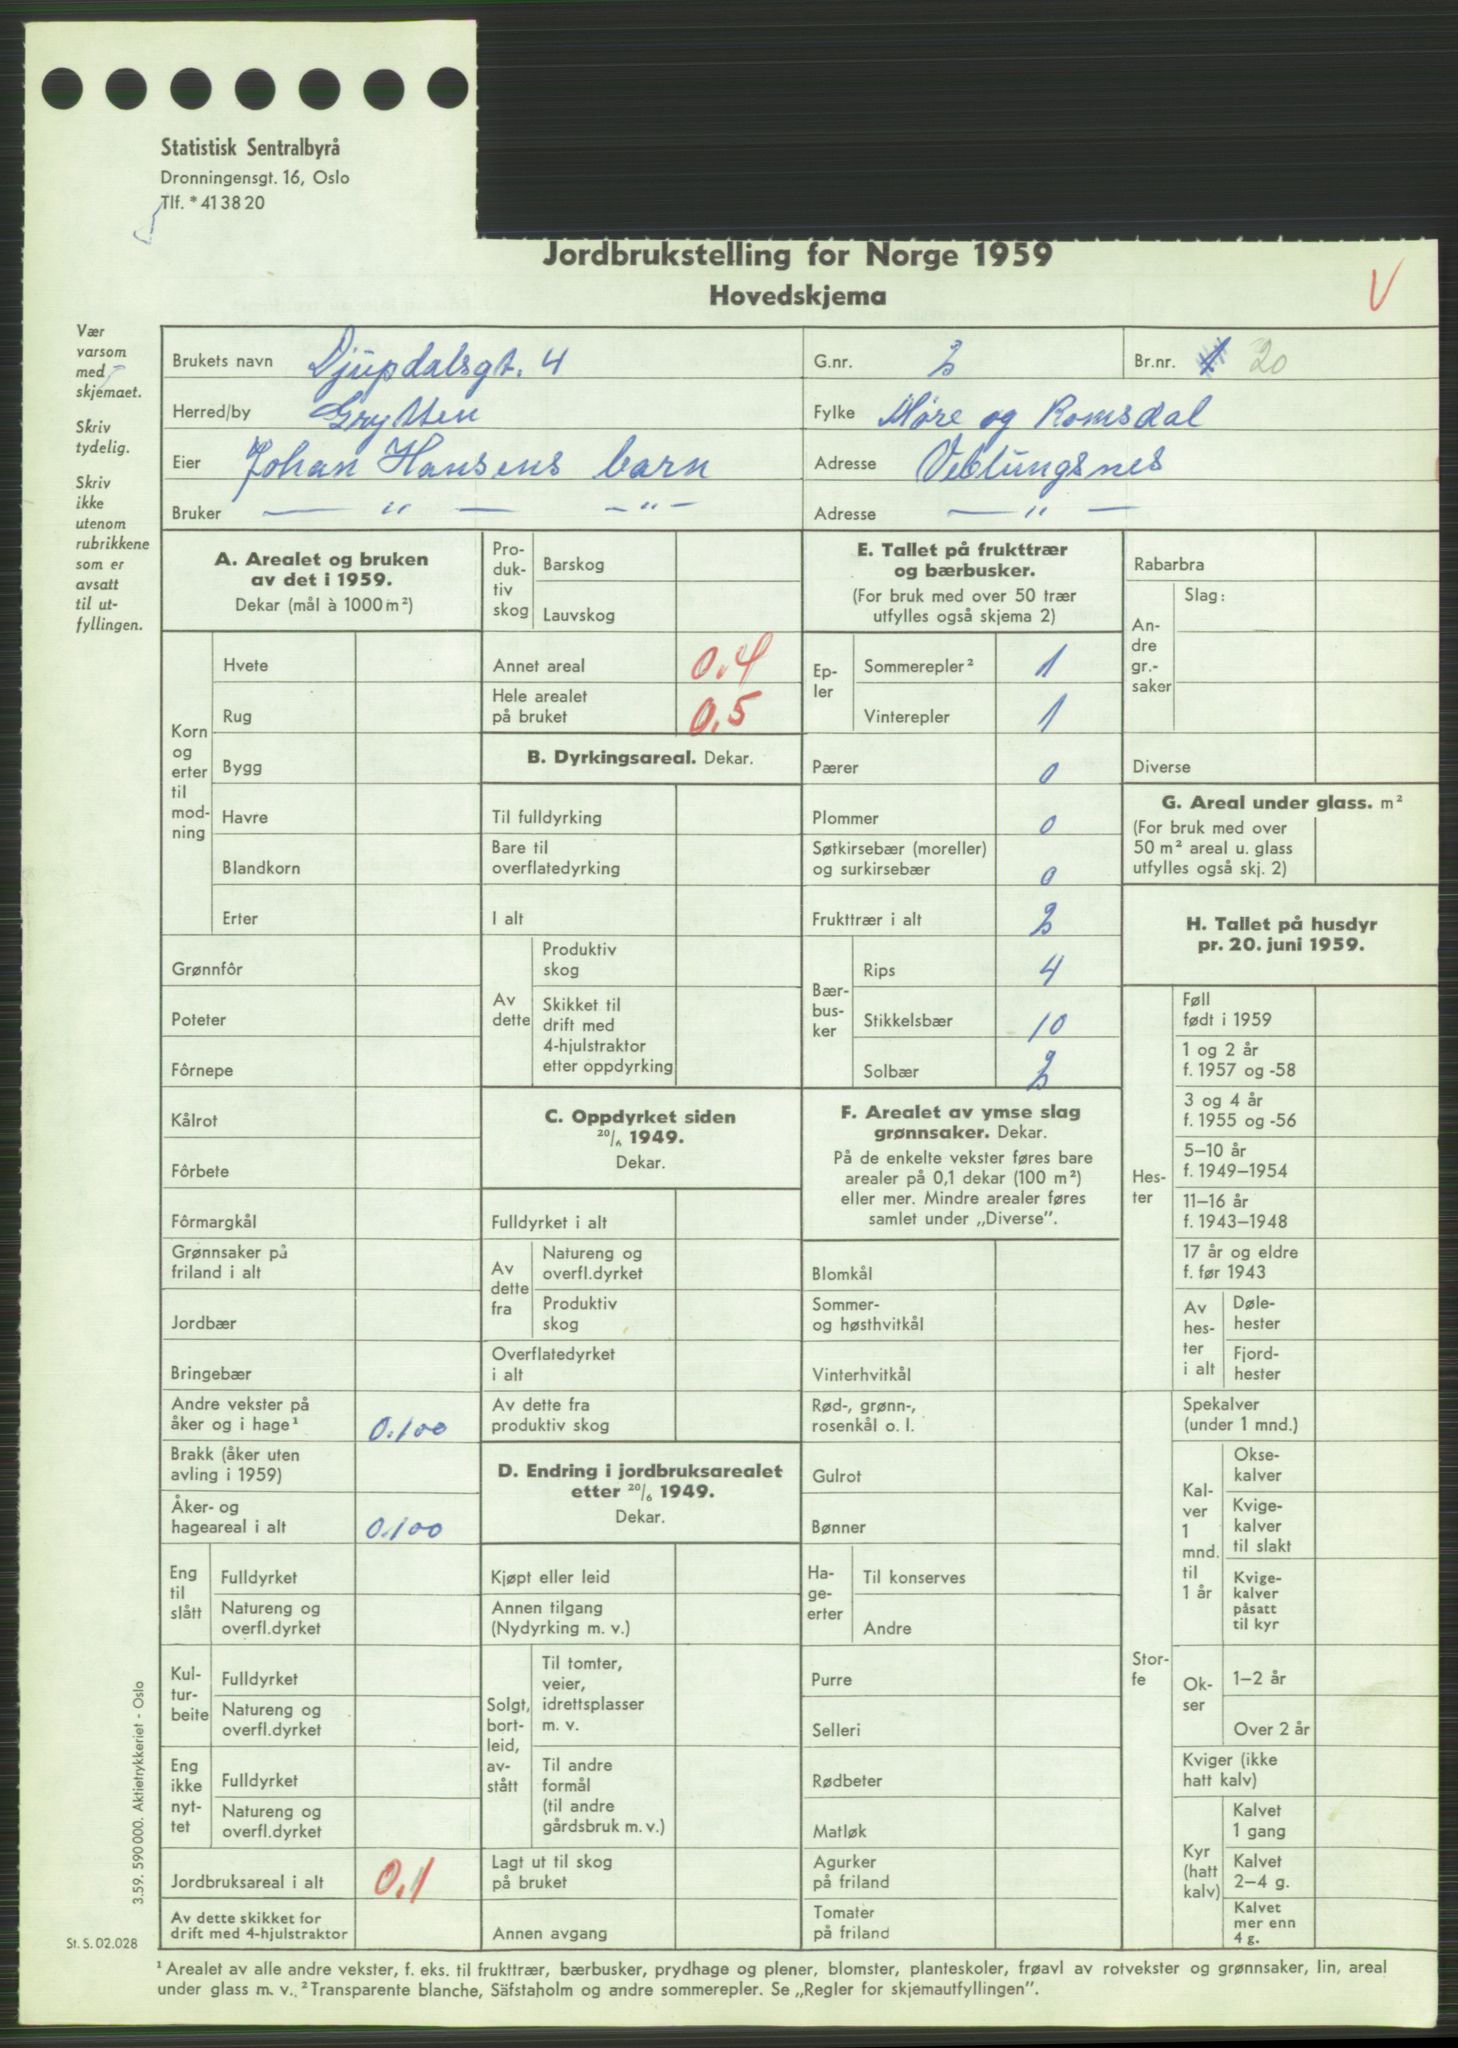 Statistisk Sentralbyrå
Dronningensgt. 16, Oslo
Tlf. * 41 38 20
Jordbrukstelling for Norge 1959
Hovedskjema
V
Vær
varsom
med
skjemaet.
Skriv
tydelig.
Skriv
ikke
utenom
rubrikkene
som er
avsatt
til ut-
fyllingen.
Brukets navn Djupdalsgt. 4 G.nr. 2 Br.nr. 20
Herred/by Grytten Fylke Møre og Romsdal
Eier Johan Hansens barn Adresse Veblungsnes
Bruker — " — — " — Adresse — " —
A. Arealet og bruken
av det i 1959.
Dekar (mål à 1000 m²)
Korn
og
erter
til
mod-
ning
Hvete
Rug
Bygg
Havre
Blandkorn
Erter
Grønnfôr
Poteter
Fôrnepe
Kålrot
Fôrbete
Fôrmargkål
Grønnsaker på
friland i alt
Jordbær
Bringebær
Andre vekster på
åker og i hage¹ 0.100
Brakk (åker uten
avling i 1959)
Åker- og
hageareal i alt 0.100
Eng
til
slått
Fulldyrket
Natureng og
overfl.dyrket
Kul-
tur-
beite
Fulldyrket
Natureng og
overfl.dyrket
Eng
ikke
nyt-
tet
Fulldyrket
Natureng og
overfl.dyrket
Jordbruksareal i alt 0,1
Av dette skikket for
drift med 4-hjulstraktor
Pro-
duk-
tiv
skog
Barskog
Lauvskog
Annet areal 0.4
Hele arealet
på bruket 0,5
B. Dyrkingsareal. Dekar.
Til fulldyrking
Bare til
overflatedyrking
I alt
Av
dette
Produktiv
skog
Skikket til
drift med
4-hjulstraktor
etter oppdyrking
C. Oppdyrket siden
20/6 1949.
Dekar.
Fulldyrket i alt
Av
dette
fra
Natureng og
overfl.dyrket
Produktiv
skog
Overflatedyrket
i alt
Av dette fra
produktiv skog
D. Endring i jordbruksarealet
etter 20/6 1949.
Dekar.
Kjøpt eller leid
Annen tilgang
(Nydyrking m. v.)
Solgt,
bort-
leid,
av-
stått
Til tomter,
veier,
idrettsplasser
m. v.
Til andre
formål
(til andre
gårdsbruk m. v.)
Lagt ut til skog
på bruket
Annen avgang
E. Tallet på frukttrær
og bærbusker.
(For bruk med over 50 trær
utfylles også skjema 2)
Ep-
ler
Sommerepler² 1
Vinterepler 1
Pærer 0
Plommer 0
Søtkirsebær (moreller)
og surkirsebær 0
Frukttrær i alt 2
Bær-
bus-
ker
Rips 4
Stikkelsbær 10
Solbær 2
F. Arealet av ymse slag
grønnsaker. Dekar.
På de enkelte vekster føres bare
arealer på 0,1 dekar (100 m²)
eller mer. Mindre arealer føres
samlet under „Diverse”.
Blomkål
Sommer-
og høsthvitkål
Vinterhvitkål
Rød-, grønn-,
rosenkål o. l.
Gulrot
Bønner
Ha-
ge-
erter
Til konserves
Andre
Purre
Selleri
Rødbeter
Matløk
Agurker
på friland
Tomater
på friland
Rabarbra
An-
dre
gr.-
saker
Slag:
Diverse
G. Areal under glass. m²
(For bruk med over
50 m² areal u. glass
utfylles også skj. 2)
H. Tallet på husdyr
pr. 20. juni 1959.
Hes-
ter
Føll
født i 1959
1 og 2 år
f. 1957 og -58
3 og 4 år
f. 1955 og -56
5–10 år
f. 1949–1954
11–16 år
f. 1943–1948
17 år og eldre
f. før 1943
Av
hes-
ter
i alt
Døle-
hester
Fjord-
hester
Stor-
fe
Spekalver
(under 1 mnd.)
Kal-
ver
1
mnd.
til
1 år
Okse-
kalver
Kvige-
kalver
til slakt
Kvige-
kalver
påsatt
til kyr
Ok-
ser
1–2 år
Over 2 år
Kviger (ikke
hatt kalv)
Kyr
(hatt
kalv)
Kalvet
1 gang
Kalvet
2–4 g.
Kalvet
mer enn
4 g.
3.59. 590 000. Aktietrykkeriet - Oslo
St. S. 02.028
¹ Arealet av alle andre vekster, f. eks. til frukttrær, bærbusker, prydhage og plener, blomster, planteskoler, frøavl av rotvekster og grønnsaker, lin, areal
under glass m. v. ² Transparente blanche, Säfstaholm og andre sommerepler. Se „Regler for skjemautfyllingen”.